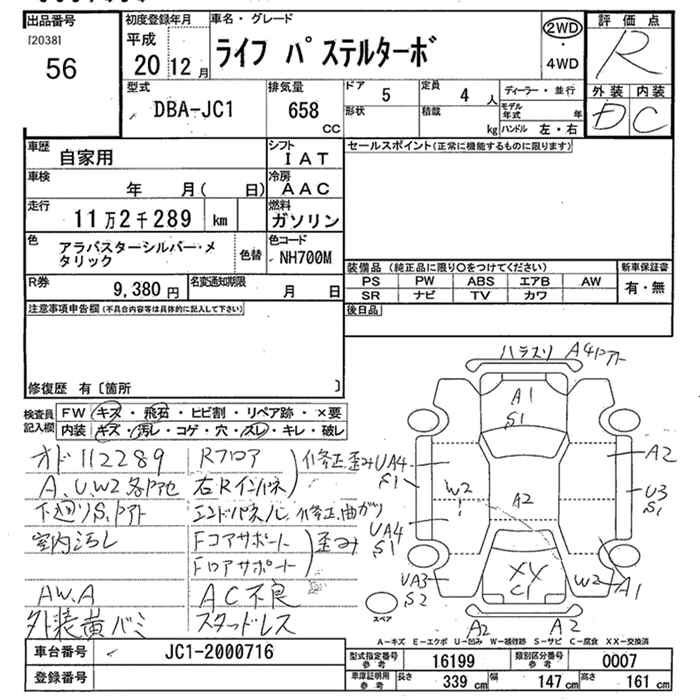 出品番号
[2038]
56
初度登録年月
平成
20 12 月
車名・グレード
ライフ パステルターボ
2WD
・
4WD
評価点
R
外装 内装
D C
型式
DBA-JC1
排気量
658
CC
ドア
5
定員
4 人
形状
積載
kg
ディーラー・並行
モデル年式 年
ハンドル 左・右
車歴
自家用
シフト
IAT
車検
年 月( 日)
冷房
AAC
走行
11万2千289 km
燃料
ガソリン
色
アラバスターシルバー・メタリック
色替
色コード
NH700M
R券
9,380 円
名変通知期限
月 日
セールスポイント(正常に機能するものに限ります)
装備品 (純正品に限り○をつけてください)
PS PW ABS エアB AW
SR ナビ TV カワ
新車保証書
有・無
後日品
注意事項申告欄(不具合内容等は具体的に記入して下さい)
修復歴 有〔箇所 〕
検査員
記入欄
FW キズ・飛石・ヒビ割・リペア跡・×要
内装 キズ・汚レ・コゲ・穴・スレ・キレ・破レ
オド112289
A、U、W2各
下廻りS、
室内汚レ
AW.A
外装黄バミ
Rフロア
右Rインパネ
修正歪み
エンドパネル 修正曲がり
Fコアサポート
Fロアサポート
歪み
AC不良
スタッドレス
A1
S1
A2
UA4
S1
W2
A2
U3
S1
UA4
S1
UA3
S2
XY
C1
W2
A1
A2
A2
スペア
A-キズ E-エクボ U-凹み W-補修跡 S-サビ C-腐食 XX-交換済
車台番号
JC1-2000716
登録番号
型式指定番号
参考
16199
類別区分番号
参考
0007
車庫証明用
参考
長さ
339 cm
幅
147 cm
高さ
161 cm